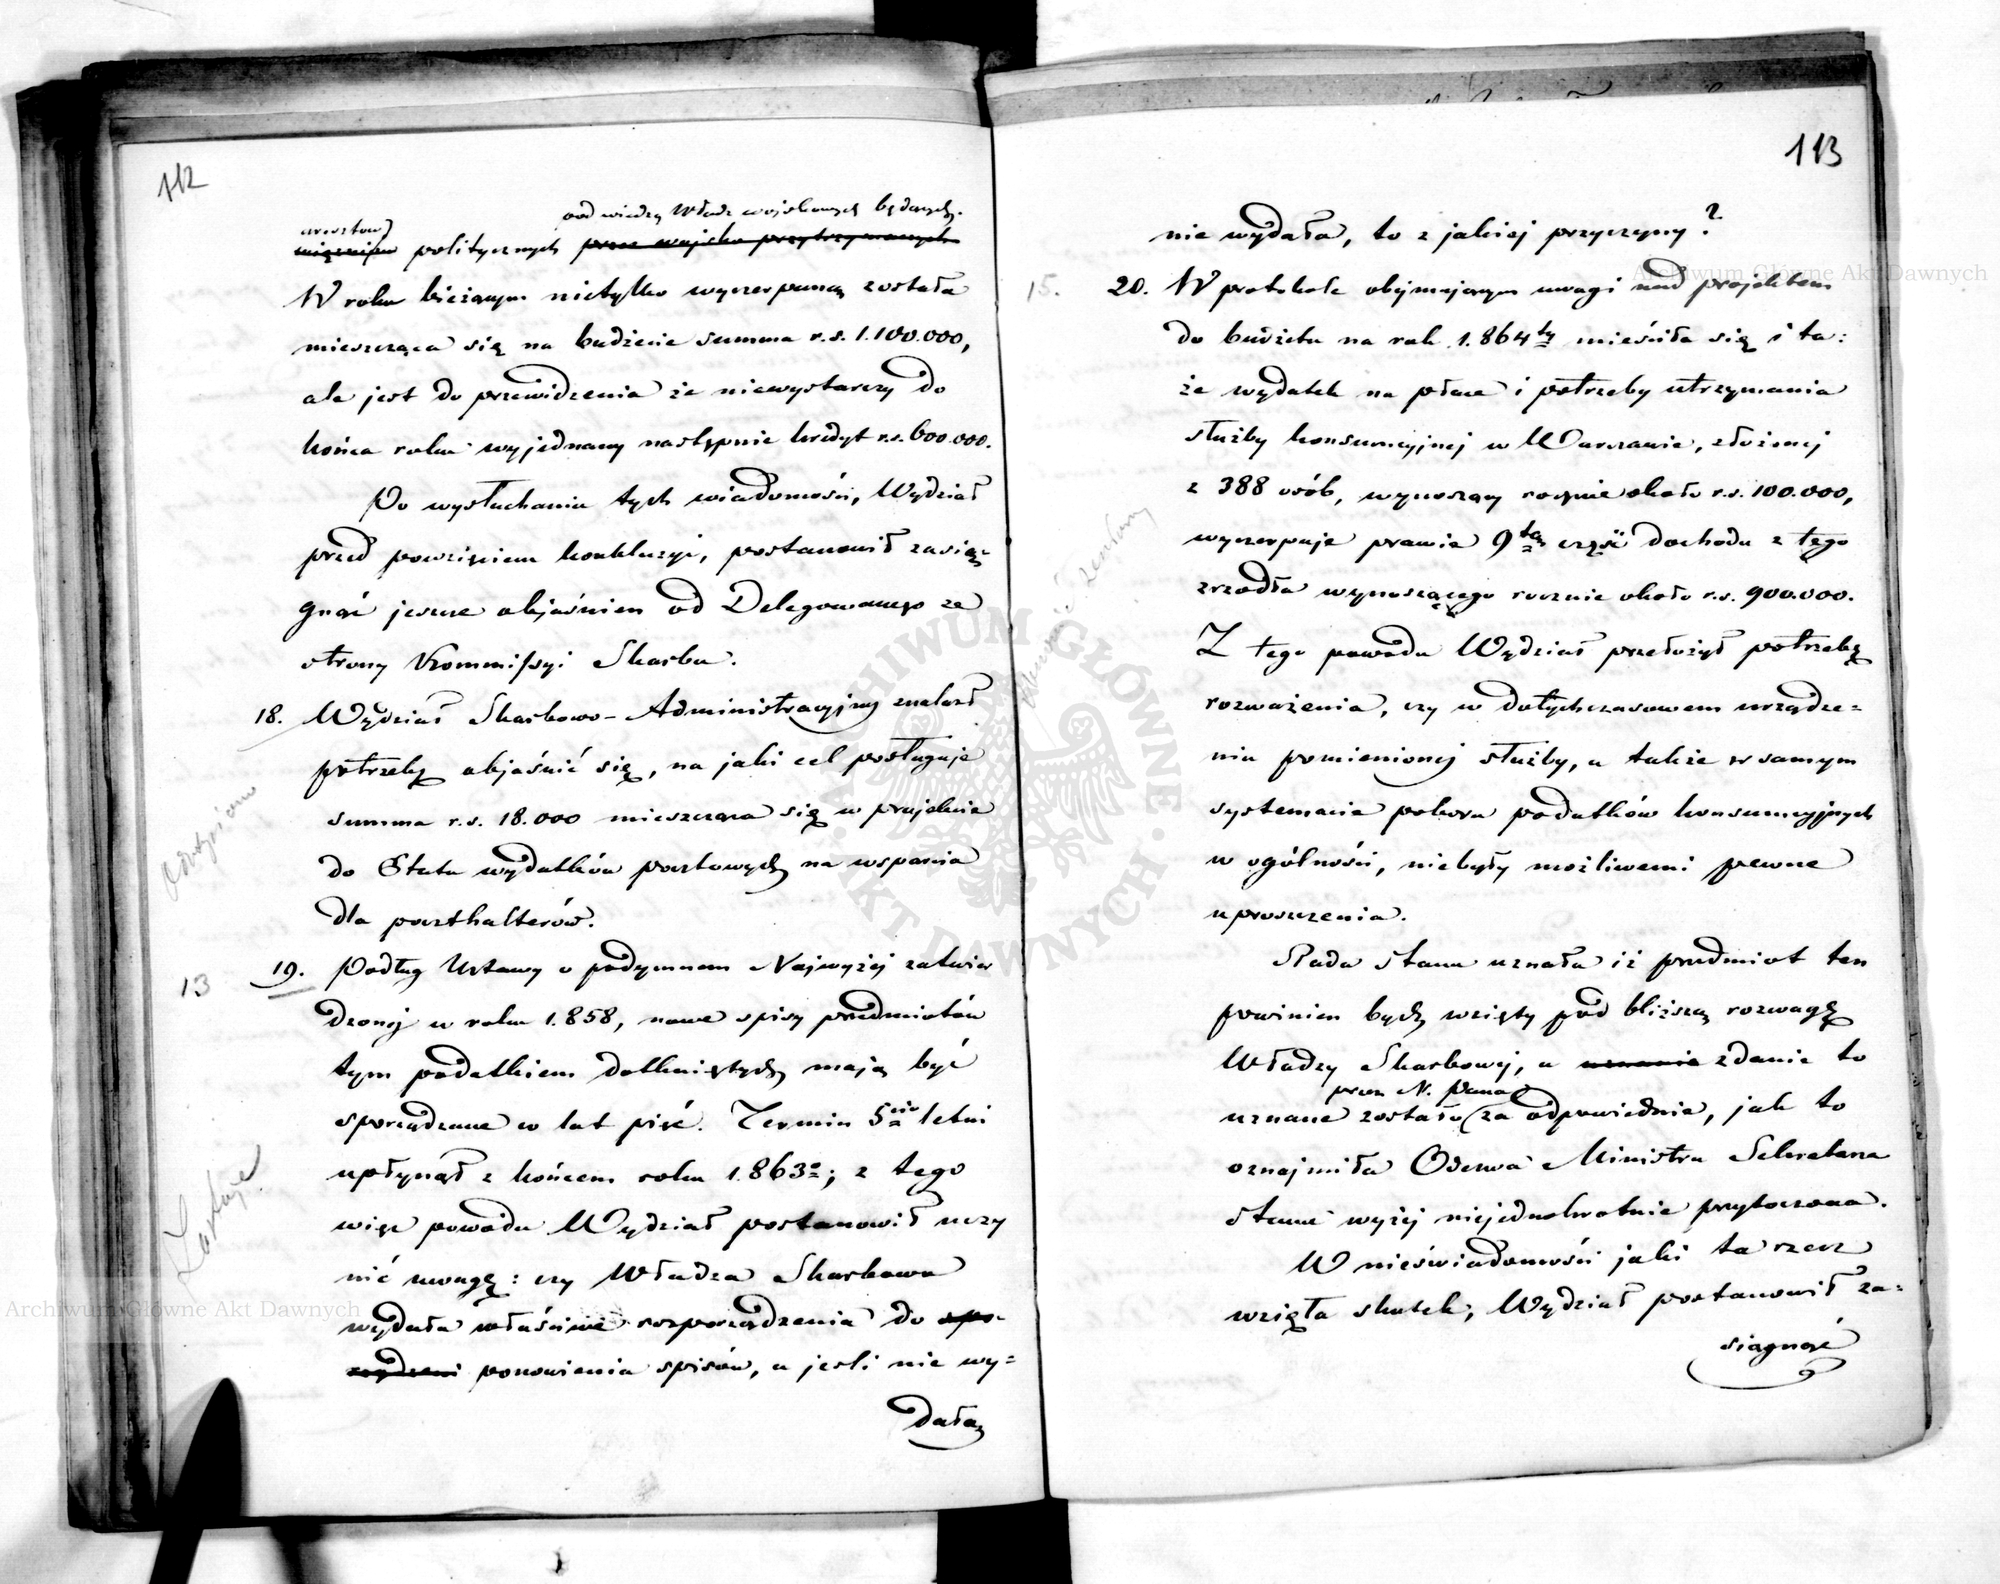 112
aresztów pod wiedzą Władz wojskowych będących.
więźniów politycznych przez wojsko przytrzymanych
W roku bieżącym nietylko wyczerpaną została
mieszcząca się na budżecie summa r.s. 1.100.000,
ale jest do przewidzenia że niewystarczy do
końca roku wyjednany następnie kredyt r.s. 600.000.
Po wysłuchaniu tych wiadomości, Wydział
przed powzięciem konkluzyi, postanowił zasią-
gnąć jeszcze objaśnień od Delegowanego ze
strony Kommissyi Skarbu.
18. Wydział Skarbowo-Administracyjny znalazł
potrzebę objaśnić się, na jaki cel posługuje
summa r.s. 18.000 mieszcząca się w projekcie
do Etatu wydatków pocztowych na wsparcia
dla poczthalterów.
13
19. Podług Ustawy o podymnem Najwyżej zatwier
dzonej w roku 1.858, nowe spisy przedmiotów
tym podatkiem dotkniętych mają być
sporządzane co lat pięć. Termin 5cio letni
upłynął z końcem roku 1.863o; z tego
więc powodu Wydział postanowił uczy
nić uwagę: czy Władza Skarbowa
wydała właściwe rozporządzenia do spo-
rządzeni ponowienia spisów, a jeśli nie wy=
dała
113
nie wydała, to z jakiej przyczyny?
15.
20. W protokole obejmującym uwagi nad projektem
do budżetu na rok 1.864ty mieściła się i ta:
że wydatek na płace i potrzeby utrzymania
służby konsumcyjnej w Warszawie, złożonej
z 388 osób, wynoszący rocznie około r.s. 100.000,
wyczerpuje prawie 9tą część dochodu z tego
zrzodła wynoszącego rocznie około r.s. 900.000.
Z tego powodu Wydział przełożył potrzebę
rozważenia, czy w dotychczasowem urządze=
niu pomienionej służby, a także w samym
systemacie poboru podatków konsumcyjnych
w ogólności, niebyły możliwemi pewne
uproszczenia.
Rada Stanu uznała iż przedmiot ten
powinien być wzięty pod bliższą rozwagę
Władzy Skarbowej, a uznanie zdanie to
przez N. Pana
uznane zostało za odpowiednie, jak to
oznajmiła Odezwa Ministra Sekretarza
Stanu wyżej niejednokrotnie przytoczona.
W nieświadomości jaki ta rzecz
wzięła skutek, Wydział postanowił za=
siągnąć
Archiwum Główne Akt Dawnych
Archiwum Główne Akt Dawnych
ARCHIWUM GŁÓWNE · AKT DAWNYCH ·